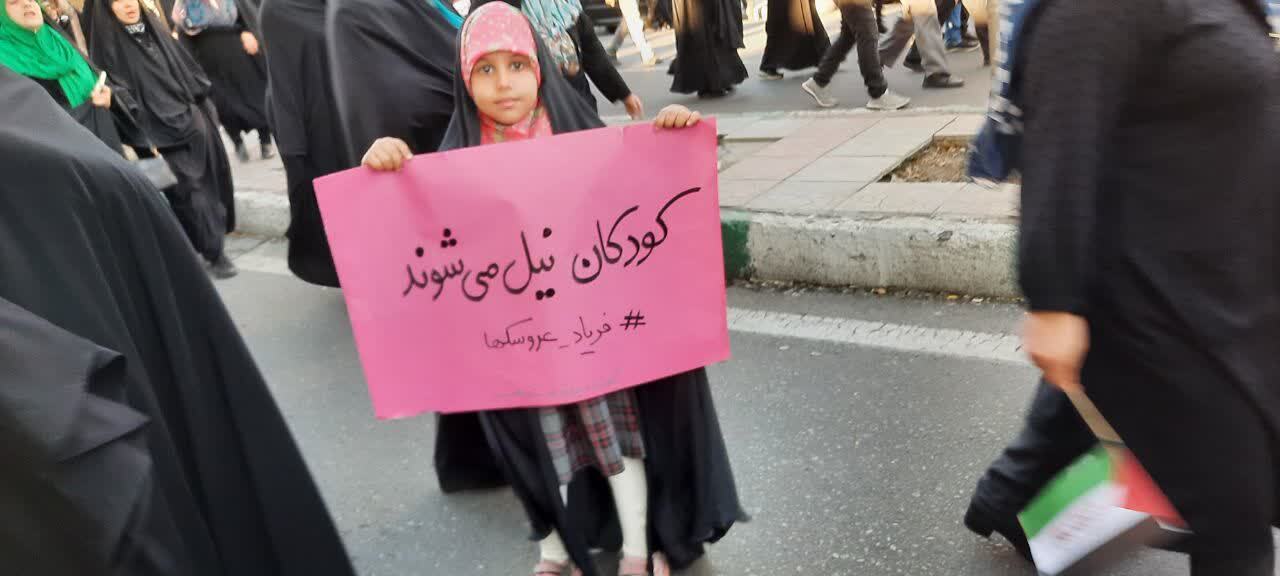 کودکان نیل می‌شوند
# فریاد_عروسکها